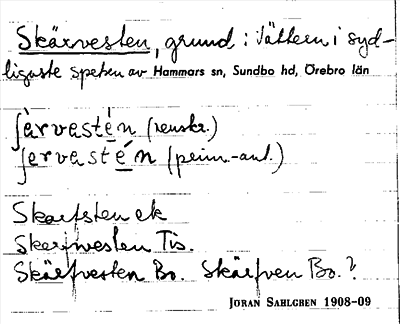 Skärvesten, grund i Vättern i syd-
ligaste spetsen av Hammars sn, Sundbo hd, Örebro län
ʃàrvasté̱n (renskr.)
ʃervasté̱n (prim.-ant.)
Skarfsten ek
Skerfwesten Tis.
Skärfvesten Bo. Skärfven Bo.?
JÖRAN SAHLGREN 1908-09